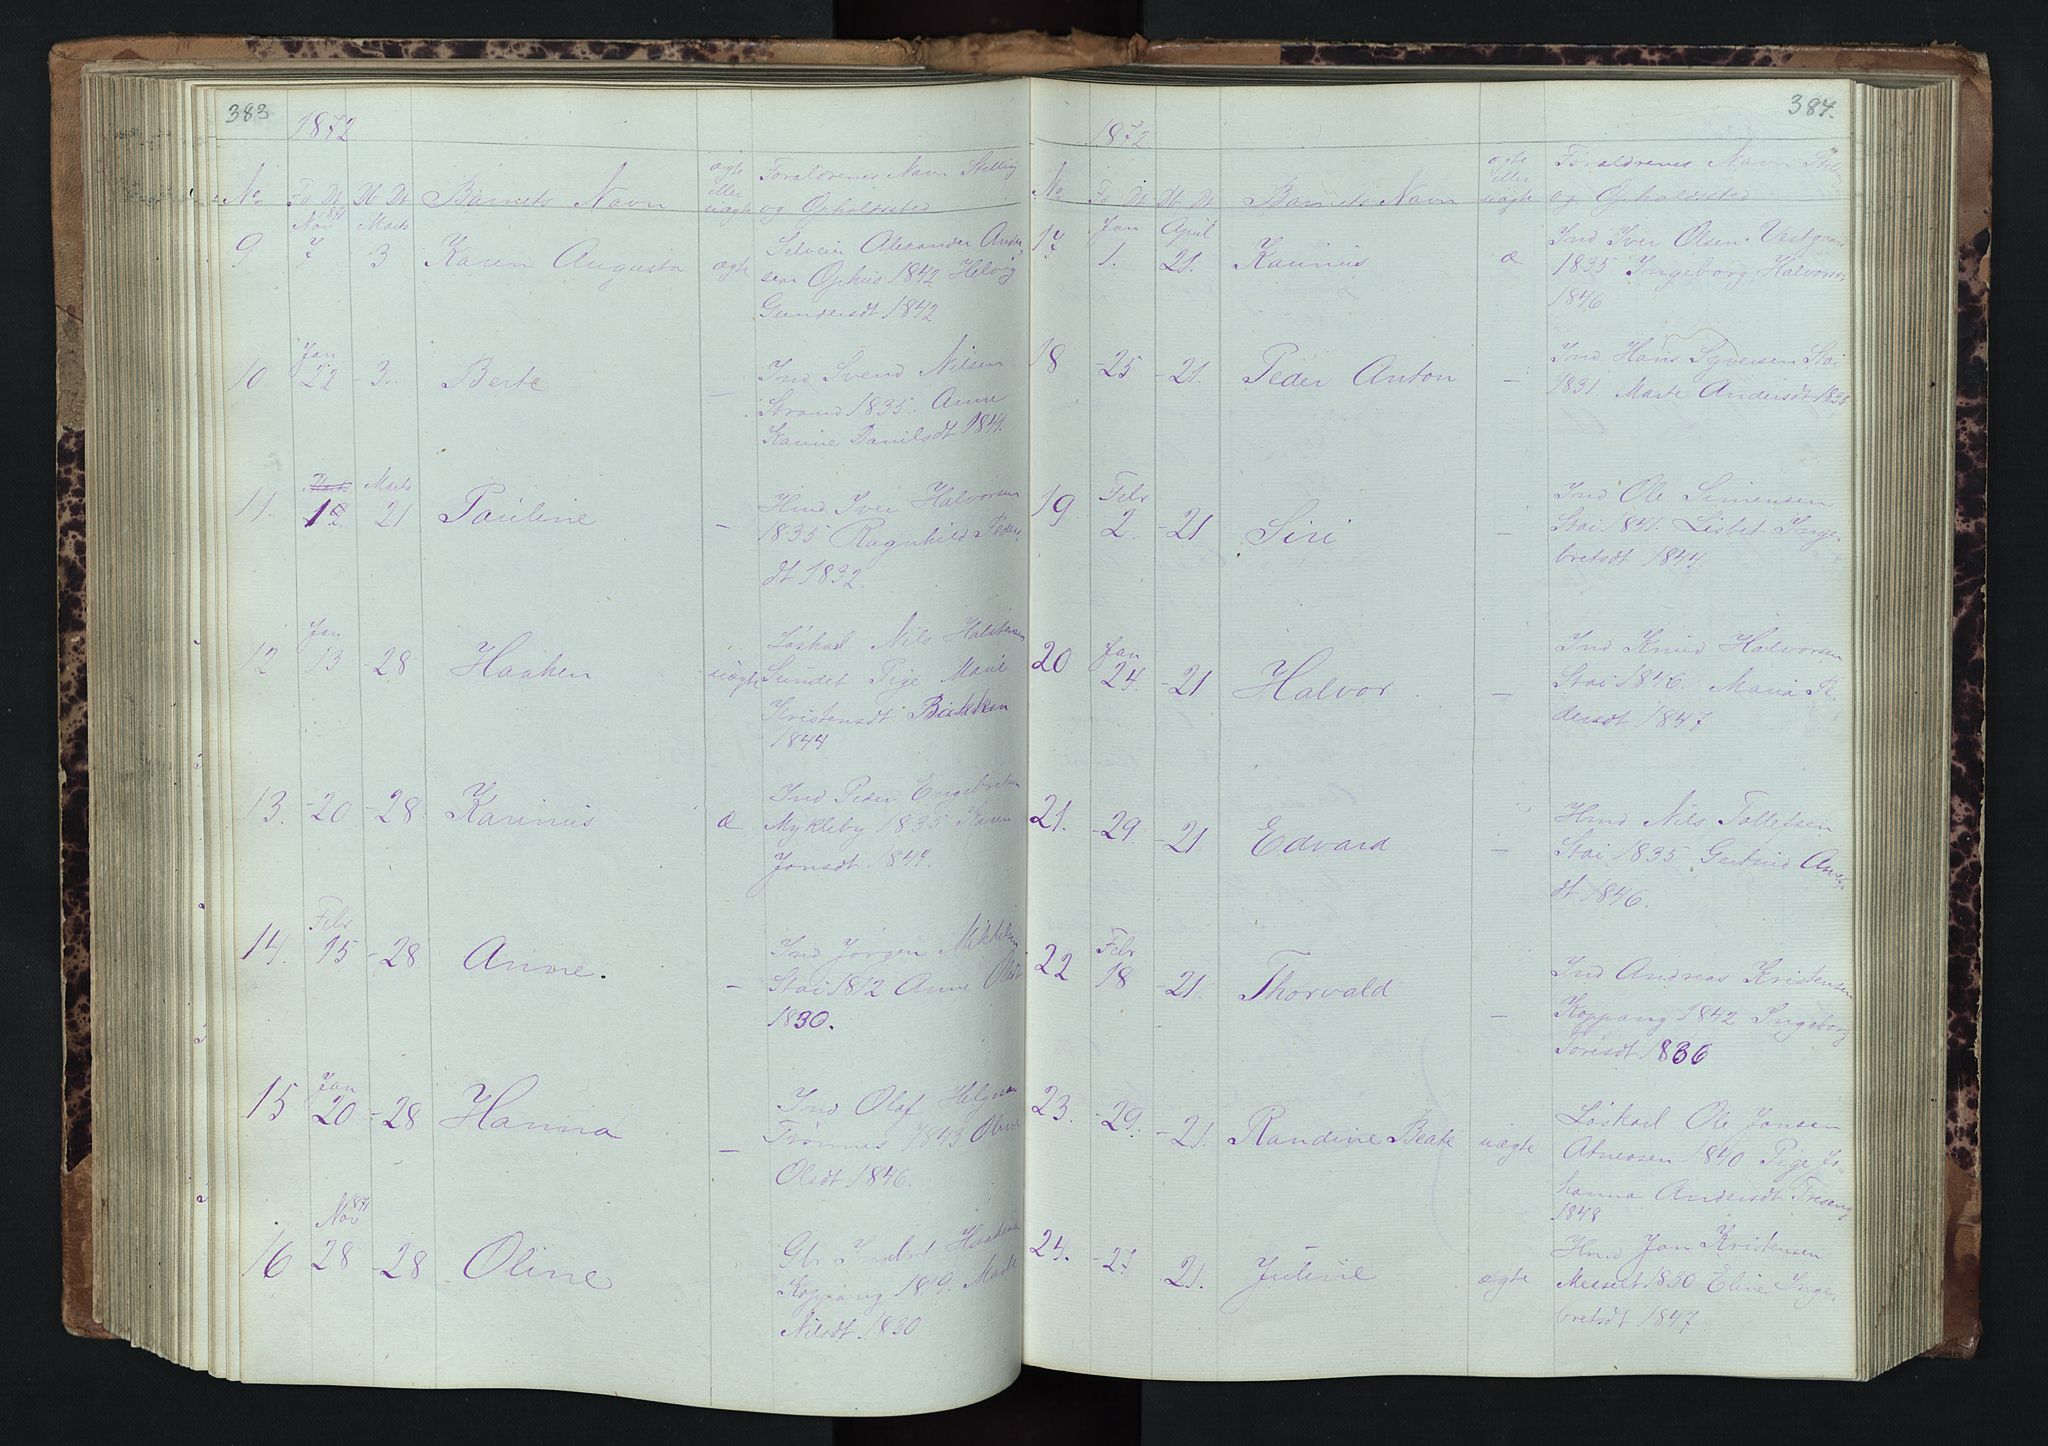 383
1872
No Fd Dt Db Dt Barnets Navn ægte eller uægte Forældrenes Navn Stilling og Opholdssted
Nov 1871 Marts
9 7 3 Karen Augusta ægte Selveier Alexander Ander-
sen Ophus 1842 Helvig
Gundersdt 1842
Jan
10 22 -3. Berte - Ind Svend Nilsen
Strand 1835. Anne
Karine Danilsdt 1841.
Marts Marts
11. 21 Pauline - Hmd Iver Halvorsen
1835 Ragnhild Peders
dt 1832.
Jan
12 13 -28 Haaken uægte Løskarl Nils Halstensen
Sundet Pige Marie
Kristensdt. Bakken
1844
13. -20 -28. Karinus æ Ind Peder Engebretsen
Mykleby 1835 Karen
Jonsdt 1841.
Febr
14. 15 -28 Anne. - Ind Jörgen Mikkelsen
Stai 1812 Anne Olsdt
1830.
Jan
15 20 -28 Hanna - Ind Olaf Helgesen
Trønnes 1843 Oline
Olsdt 1846.
Nov 1871
16 28 -28 Oline Gbr Haakensen
Koppang 1819. Marte
Nilsdt. 1830
384.
1872
No Fd Dt Db Dt Barnets Navn ægte eller uægte Forældrenes Navn Stilling og Opholdssted
Jan April
17 1. 21. Karinus æ Ind Iver Olsen Vestgaard
1835 Ingeborg Halvorsdt
1846
18 -25 -21. Peder Anton - Ind Hans Syversen Stai
1831 Marte Andersdt 1838
Febr
19 2. -21 Siri - Ind Ole Simensen
Stai 1841. Lisbet Inge-
bretsdt 1844.
Jan
20 24. -21 Halvor - Ind Knud Halvorsen
Stai 1846. Maria Pe-
dersdt 1847
21. -29. -21 Edvard - Hmd Nils Tollefsen
Stai 1835 Gertrud
dt 1846.
Febr
22 18 -21. Thorvald - Ind Andreas Kristensen
Koppang 1842 Ingeborg
Torisdt 1836
23. -29. -21. Randine Beate uægte Løskarl Ole Jonsen
Atneosen 1840 Pige Jo-
hanna Andersdt
1848
24. -27. -21. Juline ægte Hmd Jon Kristensen
Messelt 1830 Eline Inge-
bretsdt 1847.